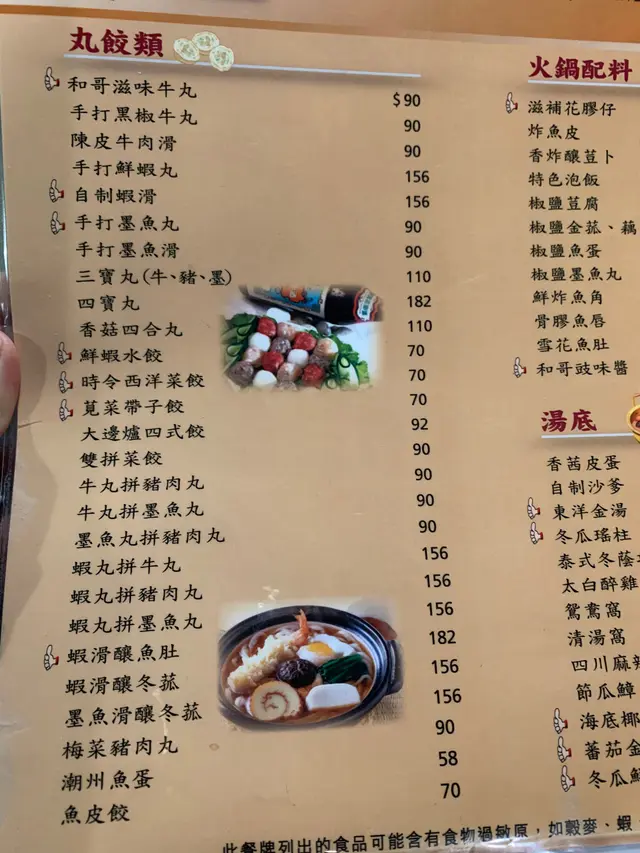 丸餃類
和哥滋味牛丸 $90
手打黑椒牛丸 90
陳皮牛肉滑 90
手打鮮蝦丸 156
自制蝦滑 156
手打墨魚丸 90
手打墨魚滑 90
三寶丸(牛、豬、墨) 110
四寶丸 182
香菇四合丸 110
鮮蝦水餃 70
時令西洋菜餃 70
莧菜帶子餃 70
大邊爐四式餃 92
雙拼菜餃 90
牛丸拼豬肉丸 90
牛丸拼墨魚丸 90
墨魚丸拼豬肉丸 90
蝦丸拼牛丸 156
蝦丸拼豬肉丸 156
蝦丸拼墨魚丸 156
蝦滑釀魚肚 182
蝦滑釀冬菰 156
墨魚滑釀冬菰 156
梅菜豬肉丸 90
潮州魚蛋 58
魚皮餃 70
火鍋配料
滋補花膠仔
炸魚皮
香炸釀荳卜
特色泡飯
椒鹽荳腐
椒鹽金菰、藕
椒鹽魚蛋
椒鹽墨魚丸
鮮炸魚角
骨膠魚唇
雪花魚肚
和哥豉味醬
湯底
香茜皮蛋
自制沙爹
東洋金湯
冬瓜瑤柱
泰式冬蔭
太白醉雞
鴛鴦窩
清湯窩
四川麻辣
節瓜鱆
海底椰
蕃茄金
冬瓜鮮
此餐牌列出的食品可能含有食物過敏原，如穀麥、蝦